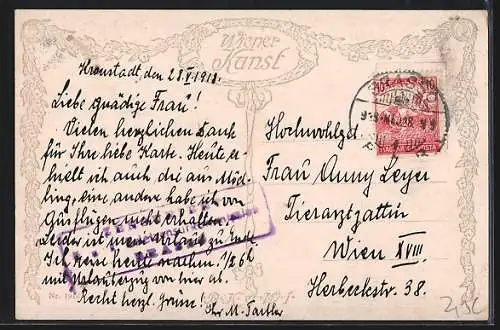 Wiener
Kunst
Kronstadt, den 28.V.1918.
Liebe gnädige Frau!
Vielen herzlichen Dank
für Ihre liebe Karte. Heute er-
hielt ich auch die aus Möd-
ling, eine andere habe ich von
Ausflügen nicht erhalten.
Leider ist mein Urlaub zu Ende.
Ich reise heute nachm. 1/2 6h
mit Urlauberzug von hier ab.
Recht herzl. Grüße!
Ihr M.
Hochwohlgeb.
Frau Anny Leyer
Tierarztgattin
Wien XVIII.
Herbeckstr. 38.
10
10
MAGYAR KIR. POSTA
ZENSUR
Nr.